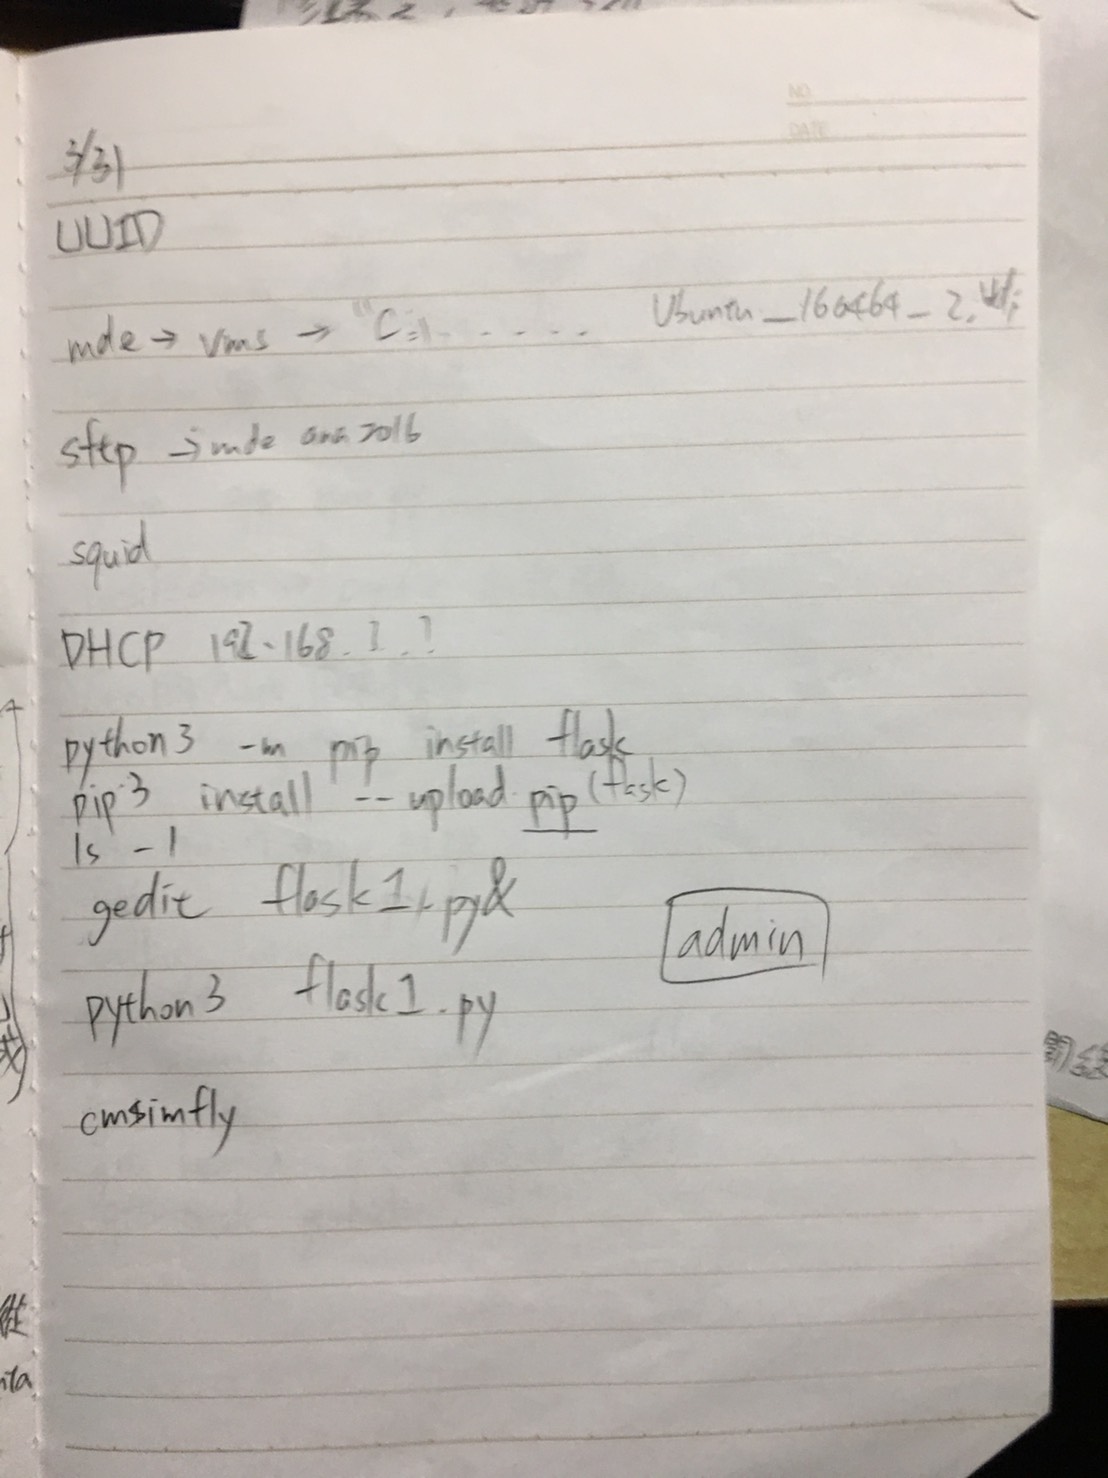 NO.
DATE
3/31
UUID
mde → vms → "C:\ . . . . . Ubuntu_160464_2.vdi
sftp → mde 2016
squid
DHCP 192.168.?.?
python3 -m pip install flask
pip3 install --upload pip (flask)
ls -l
gedit flask1.py&
admin
python3 flask1.py
cmsimfly